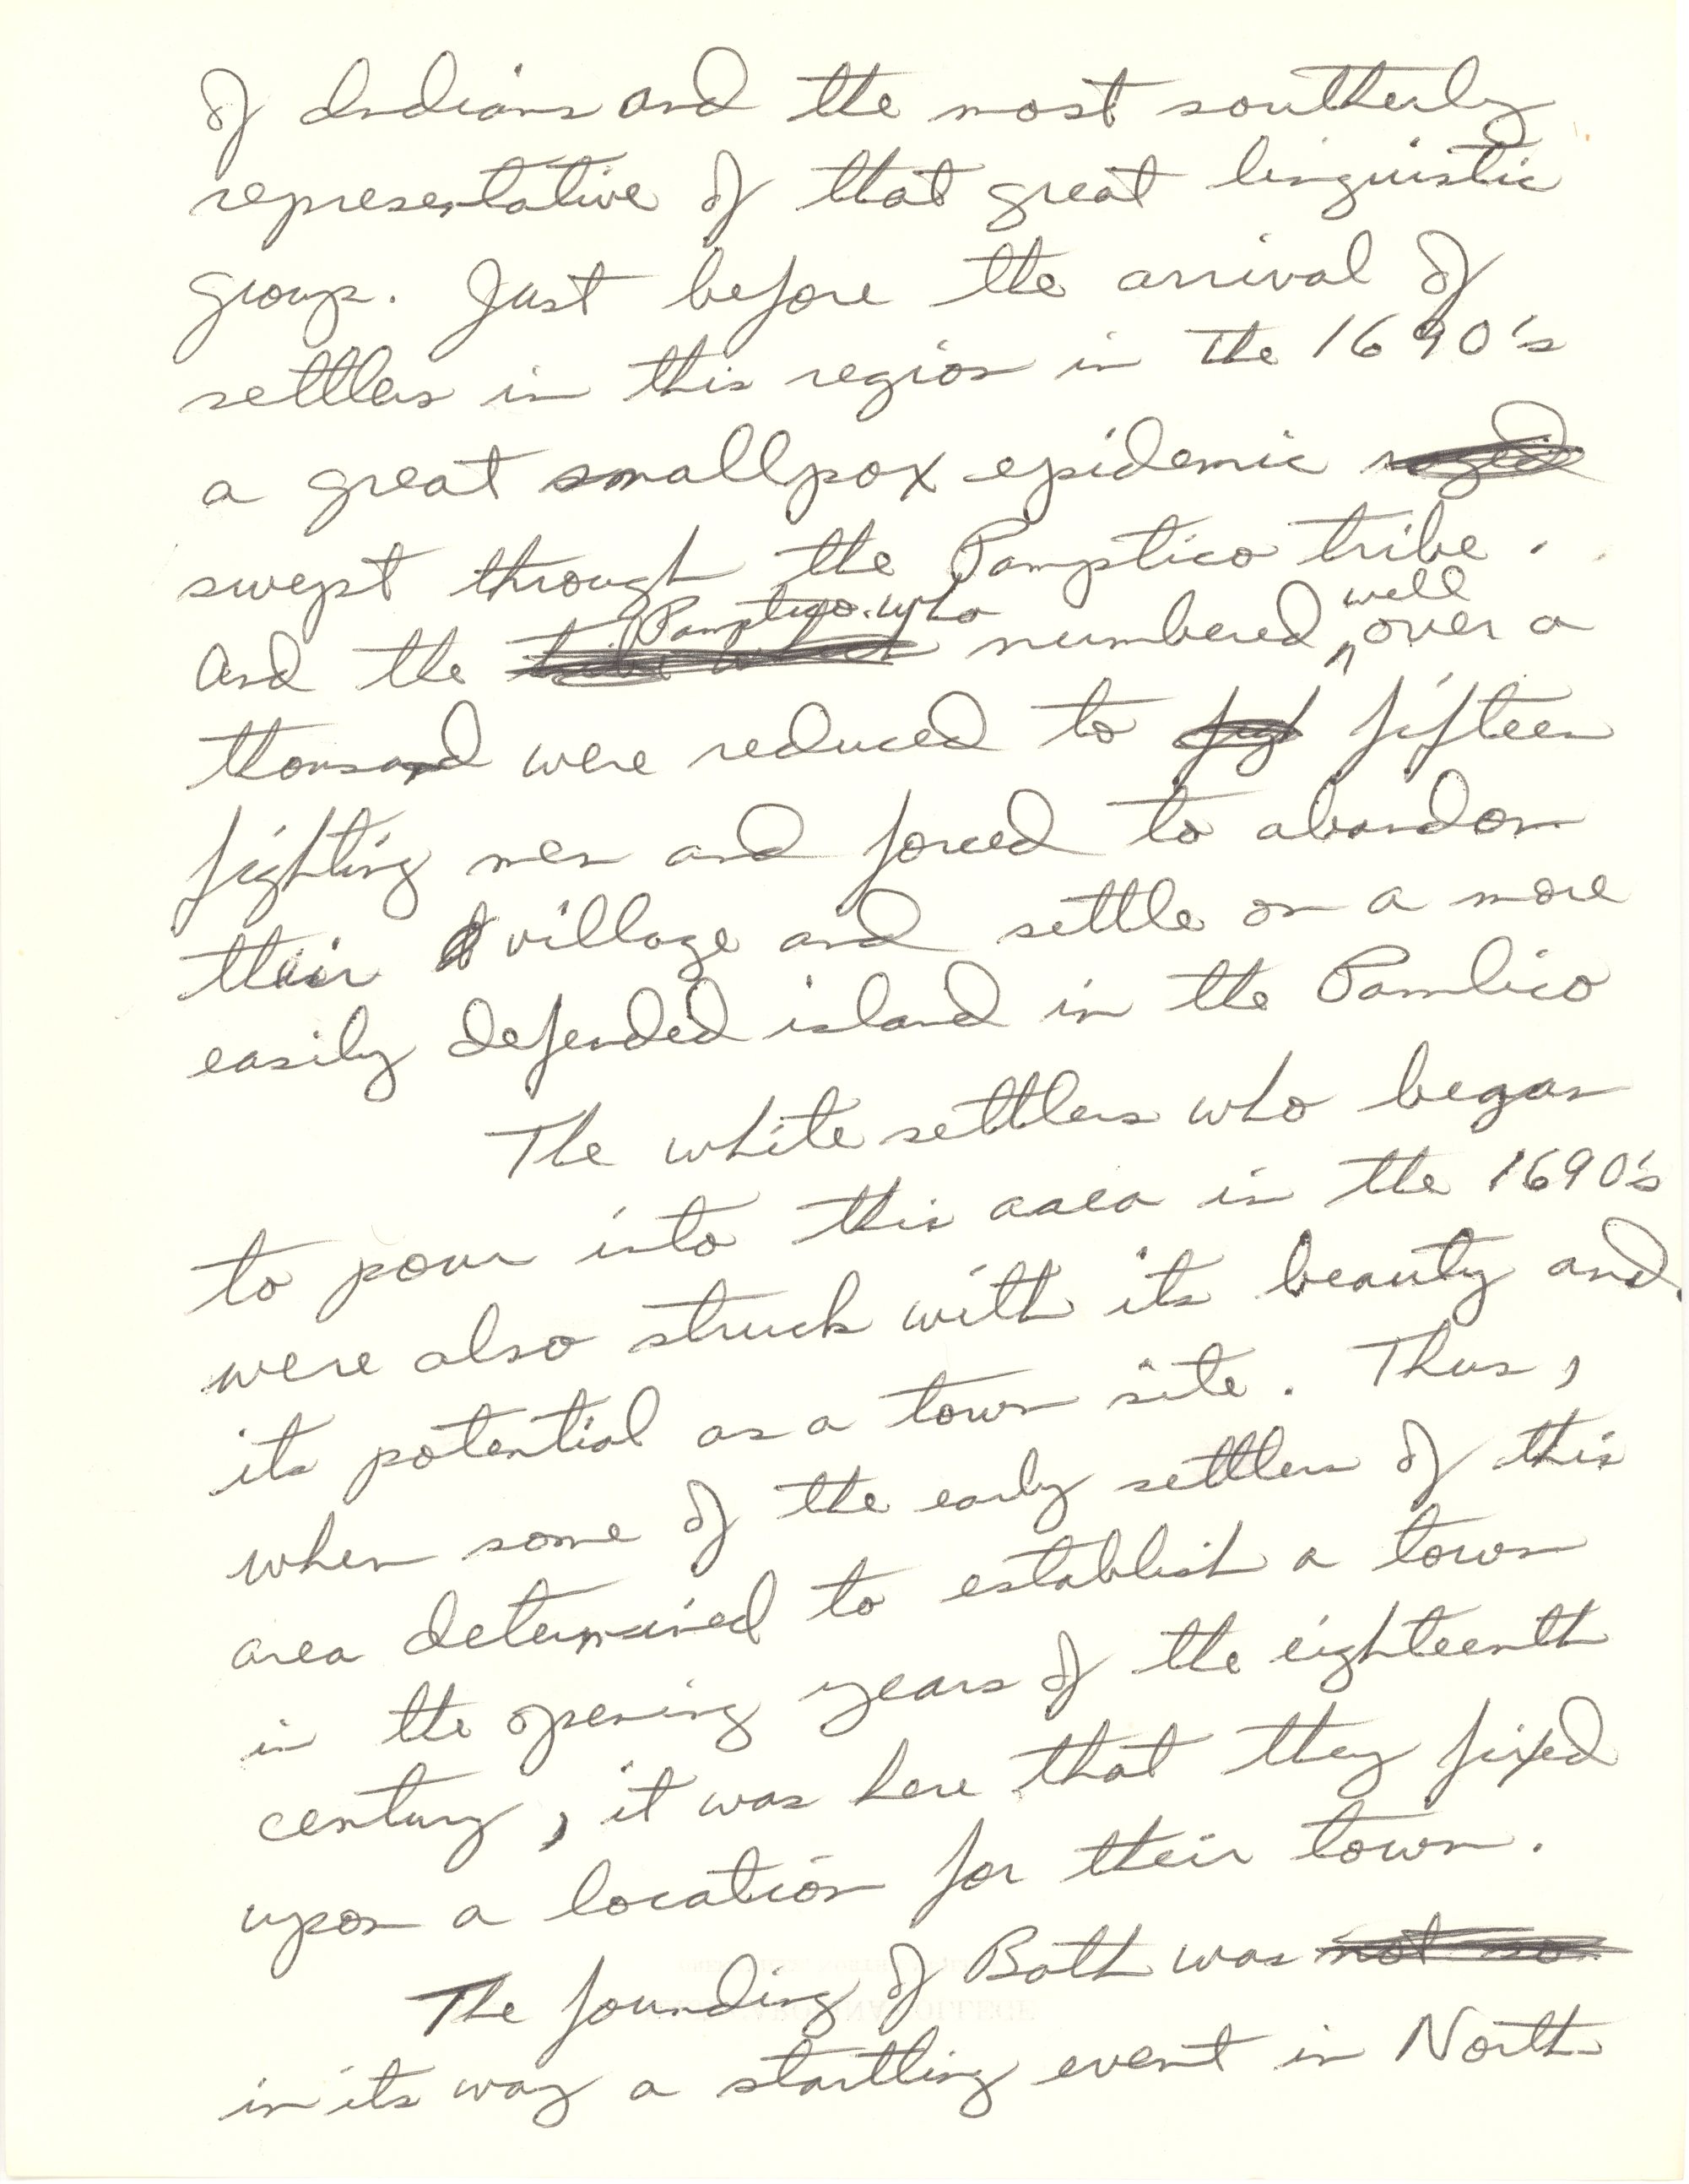 of Indians and the most southerly
representative of that great linguistic
group. Just before the arrival of
settlers in this region in the 1690's
a great smallpox epidemic raged
swept through the Pamptico tribe.
And the tribe which Pamptico who numbered well over a
thousand were reduced to fifteen
fighting men and forced to abandon
their village and settle on a more
easily defended island in the Pamlico
The white settlers who began
to pour into this area in the 1690's
were also struck with its beauty and
its potential as a town site. Thus,
when some of the early settlers of this
area determined to establish a town
in the opening years of the eighteenth
century, it was here that they fixed
upon a location for their town.
The founding of Bath was not so
in its way a startling event in North